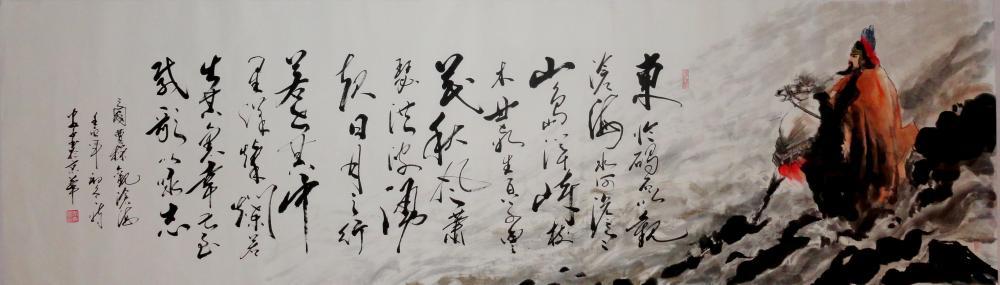 東臨碣石以觀
滄海水何澹々
山島竦峙樹
木叢生百草豐
茂秋風蕭
瑟洪波湧
起日月之行
若出其中
星漢燦爛若
出其里幸甚至
哉歌以咏志
三國曹操觀滄海